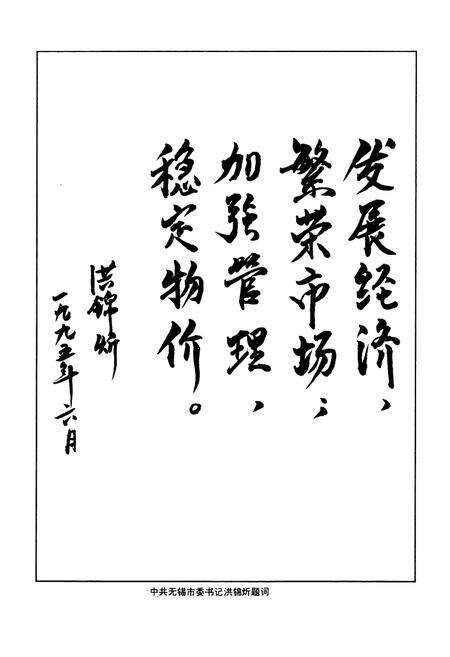 发展经济、
繁荣市场；
加强管理、
稳定物价。
洪锦炘
一九九五年六月
中共无锡市委书记洪锦炘题词